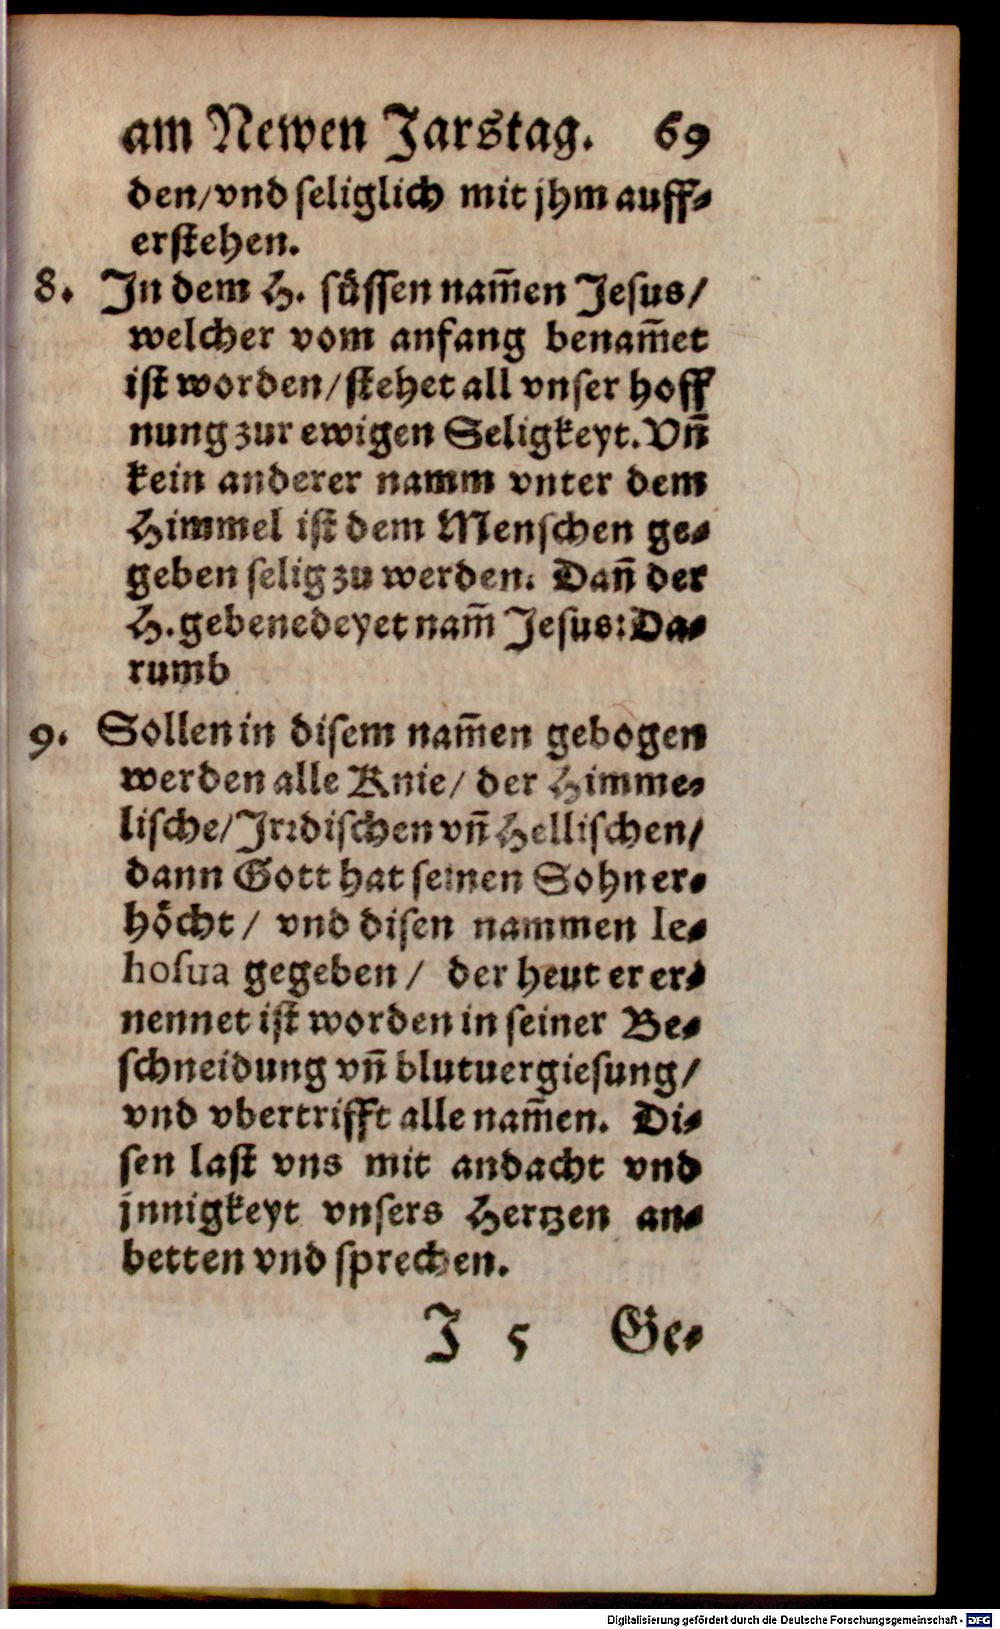 am Newen Jarstag. 69
den/vnd seliglich mit jhm auff-
erstehen.
8. In dem H. süssen nam̄en Jesus/
welcher vom anfang benam̄et
ist worden/stehet all vnser hoff
nung zur ewigen Seligkeyt. Vn̄
kein anderer namm vnter dem
Himmel ist dem Menschen ge-
geben selig zu werden. Dan̄ der
H. gebenedeyet nam̄ Jesus: Da-
rumb
9. Sollen in disem nam̄en gebogen
werden alle Knie/ der Himme-
lische/Jrꝛdischen vn̄ Hellischen/
dann Gott hat seinen Sohn er-
höcht/ vnd disen nammen Ie-
hosua gegeben/ der heut er er-
nennet ist worden in seiner Be-
schneidung vn̄ blutuergiesung/
vnd vbertrifft alle nam̄en. Di-
sen last vns mit andacht vnd
jnnigkeyt vnsers Hertzen an-
betten vnd sprechen.
J 5 Ge-
Digitalisierung gefördert durch die Deutsche Forschungsgemeinschaft - DFG